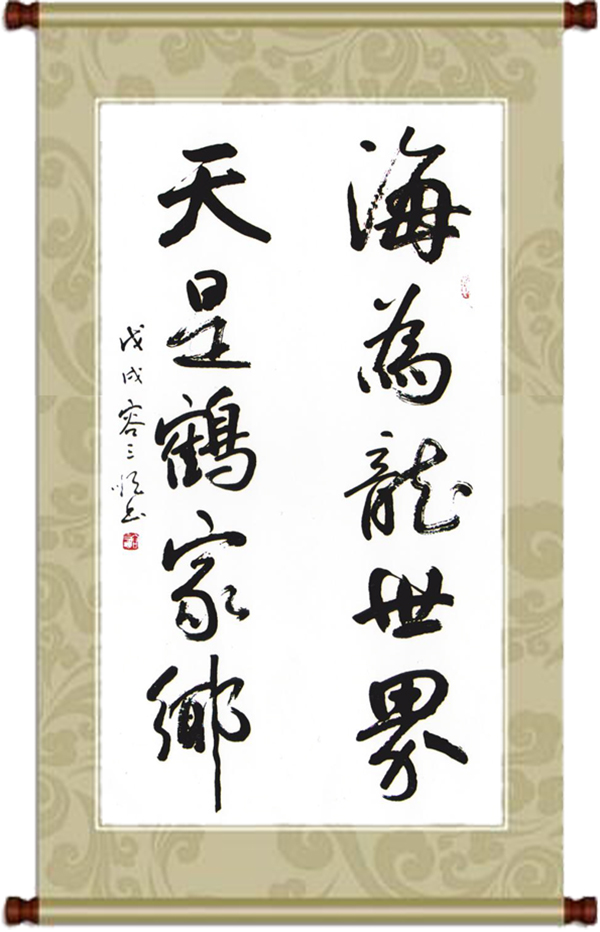 海為龍世界
天是鶴家鄉
戊戌容三恆書